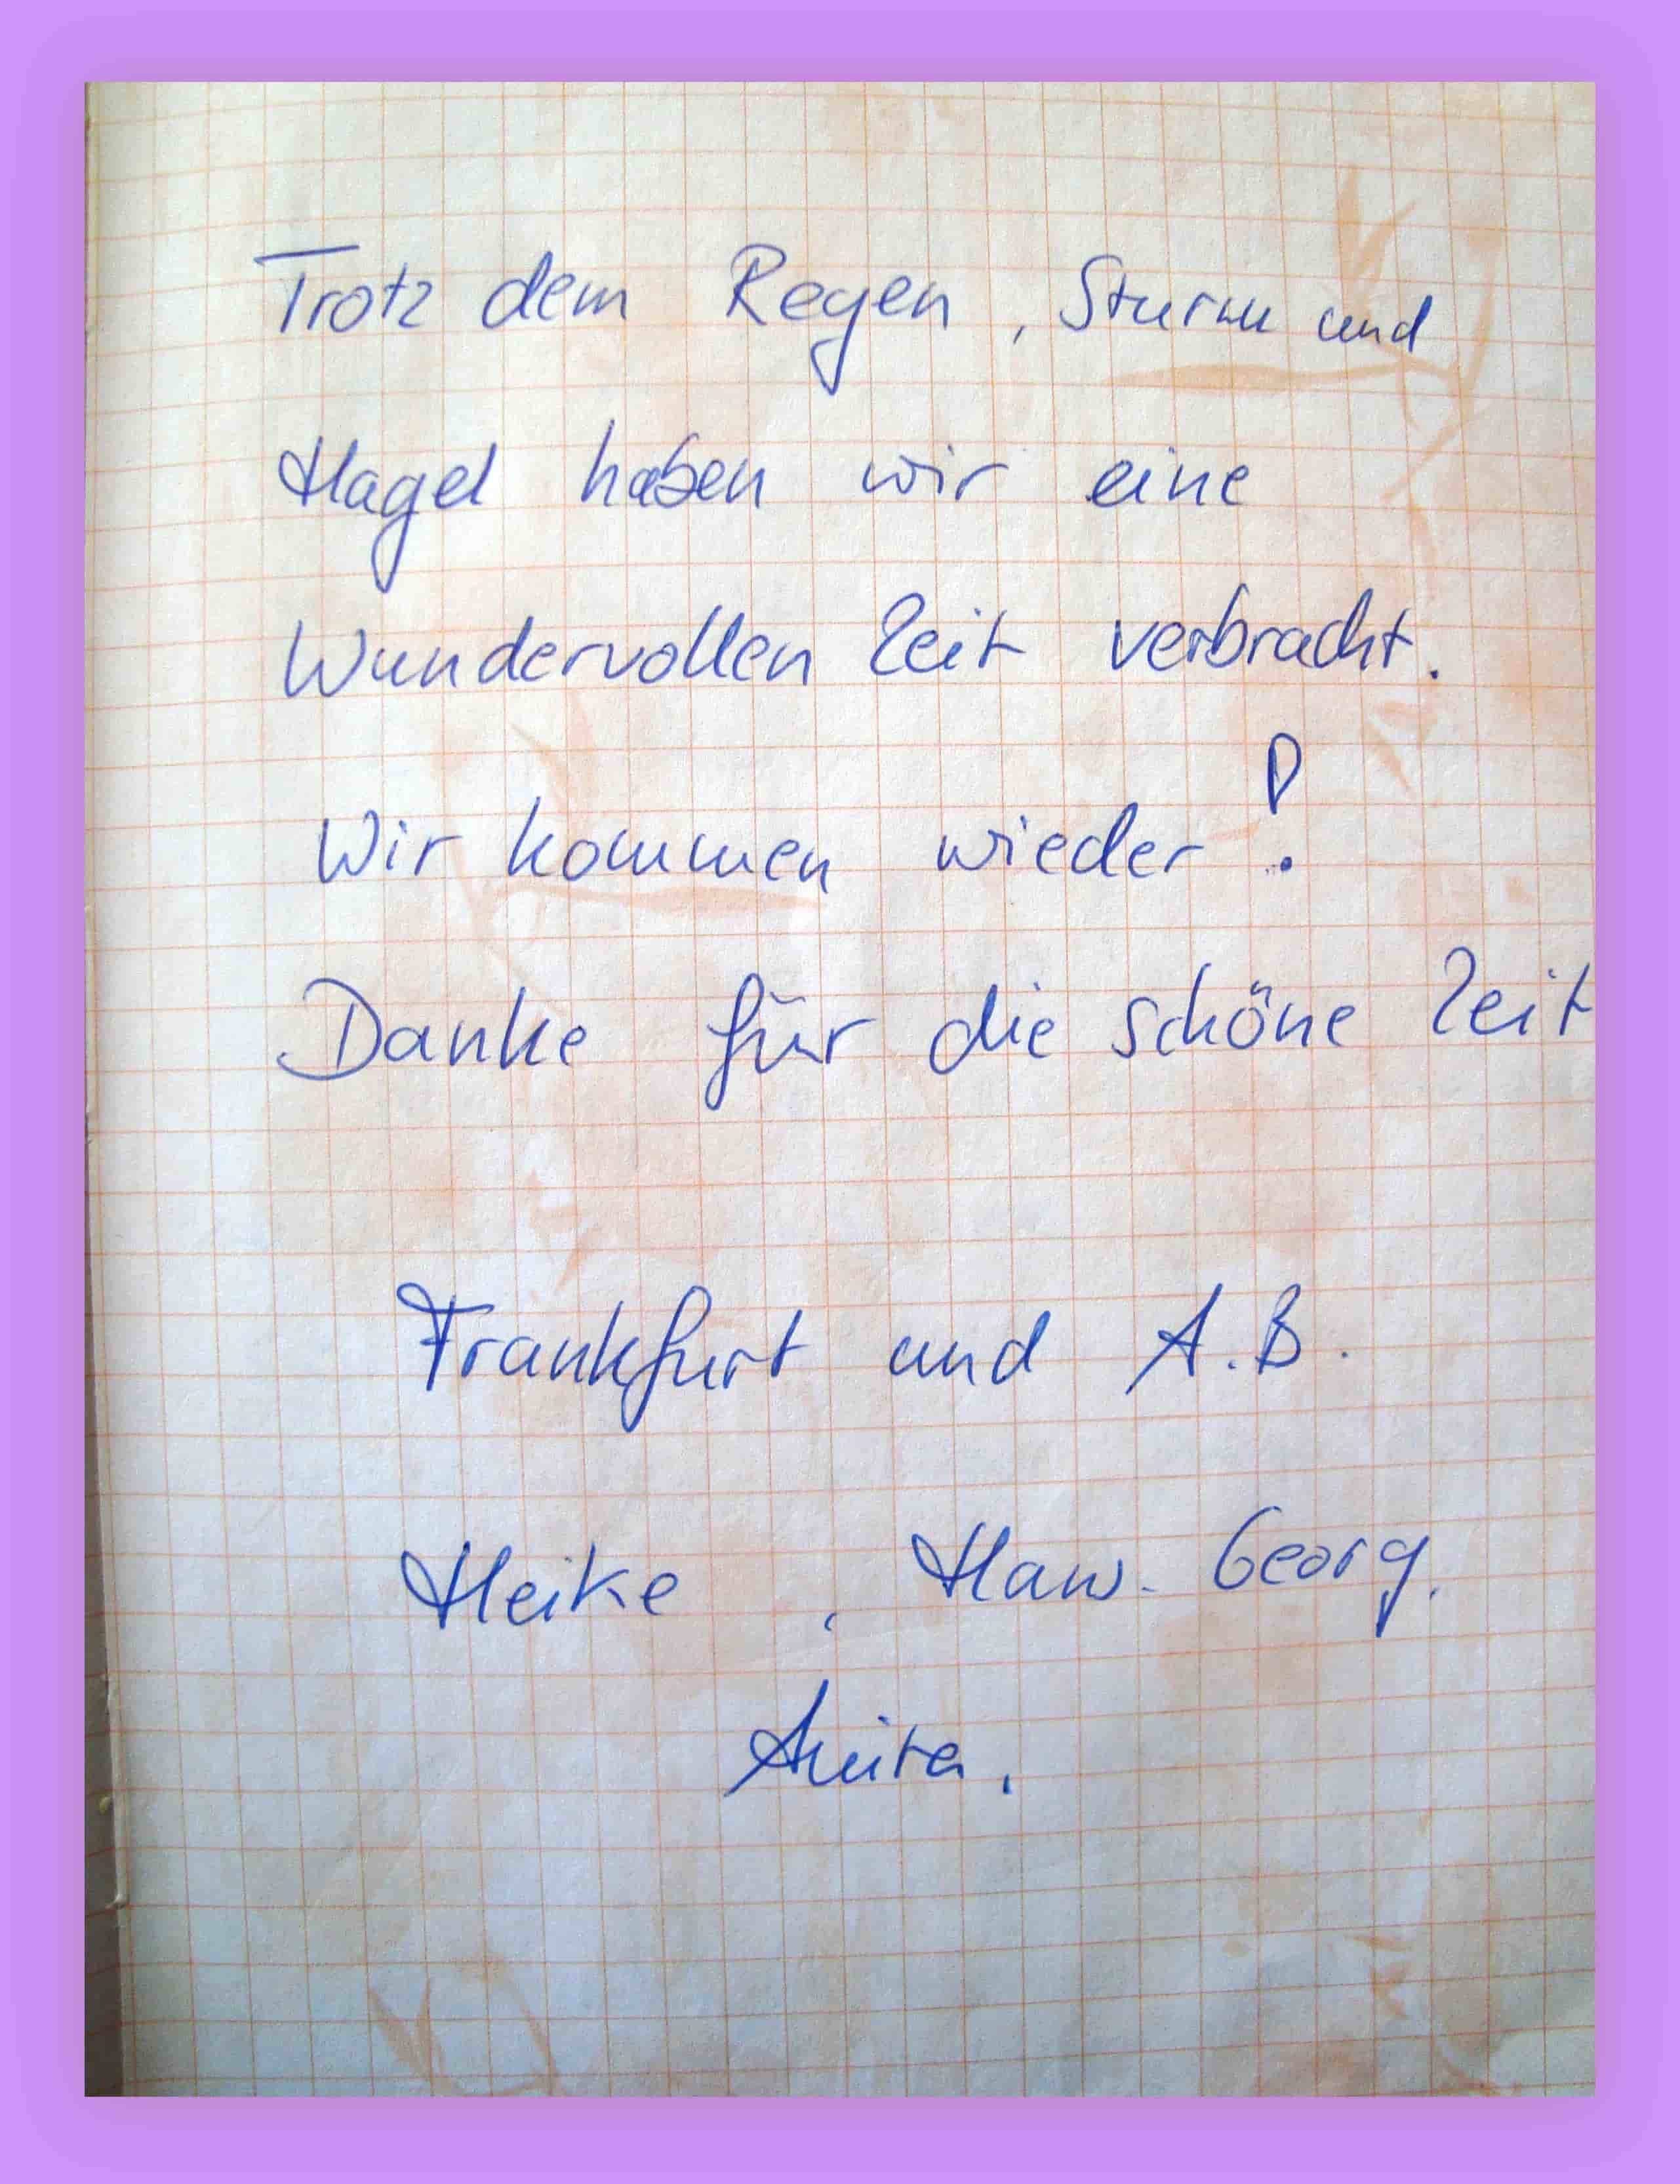 Trotz dem Regen, Sturm und
Hagel haben wir eine
Wundervollen Zeit verbracht.
Wir kommen wieder!
Danke für die schöne Zeit
Frankfurt und A.B.
Heike, Hans-Georg,
Anita.